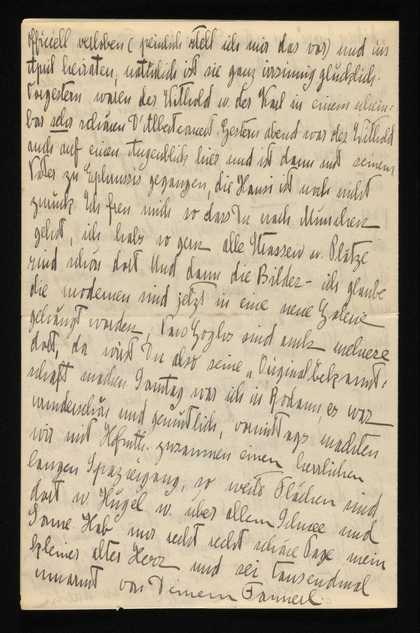 offiziell verloben (peinlich stell ich mir das vor) und im
April heiraten, natürlich ist sie ganz irrsinnig glücklich.
Vorgestern waren der Witthold u. der Karl in einem schein-
bar sehr schönen D'Albertconcert. Gestern abend war der Witthold
auch auf einen Augenblick hier und ist dann mit seinem
Vater zu gegangen, die Hansi ist noch nicht
zurück. Ich freu mich so dass Du nach München
gehst, ich hab so gern alle Strassen u. Plätze
sind schon dort. Und dann die Bilder - ich glaube
die modernen sind jetzt in eine neue Galerie
gehängt worden, Van Goghs sind auch mehrere
dort, da wirst Du also seine "Originalbekannt-
schaft machen. Samstag war ich in Rodaun, es war
wunderschön und gemütlich, vormittags machten
wir mit Hofmth. zusammen einen herrlichen
langen Spaziergang, so weite Flächen sind
dort u. Hügel u. über allem Schnee und
Sonne. Hab nur recht recht schöne Tage mein
kleines altes Herz und sei tausendmal
umarmt von Deinem Fannerl